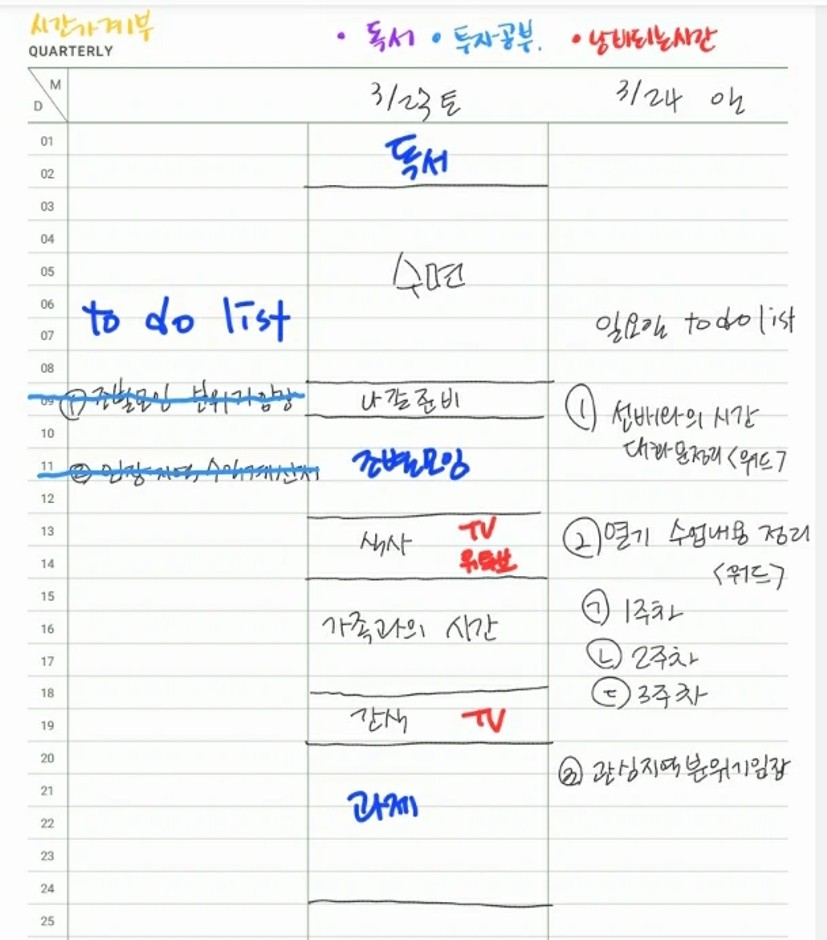 시간가계부
QUARTERLY
• 독서 • 투자공부. • 낭비되는시간
M
D
3/23 토
3/24 일
01
독서
02
03
04
05
수면
06
to do list
07
일요일 to do list
08
09
① 조별모임 분위기임장
나갈준비
① 선배와의 시간
10
대화문정리 <워드>
11
조별모임
12
13
식사
TV
② 열기 수업내용 정리
유튜브
14
<워드>
15
㉠ 1주차
16
가족과의 시간
17
㉡ 2주차
18
㉢ 3주차
19
간식
TV
20
③ 관심지역분위기임장
21
과제
22
23
24
25